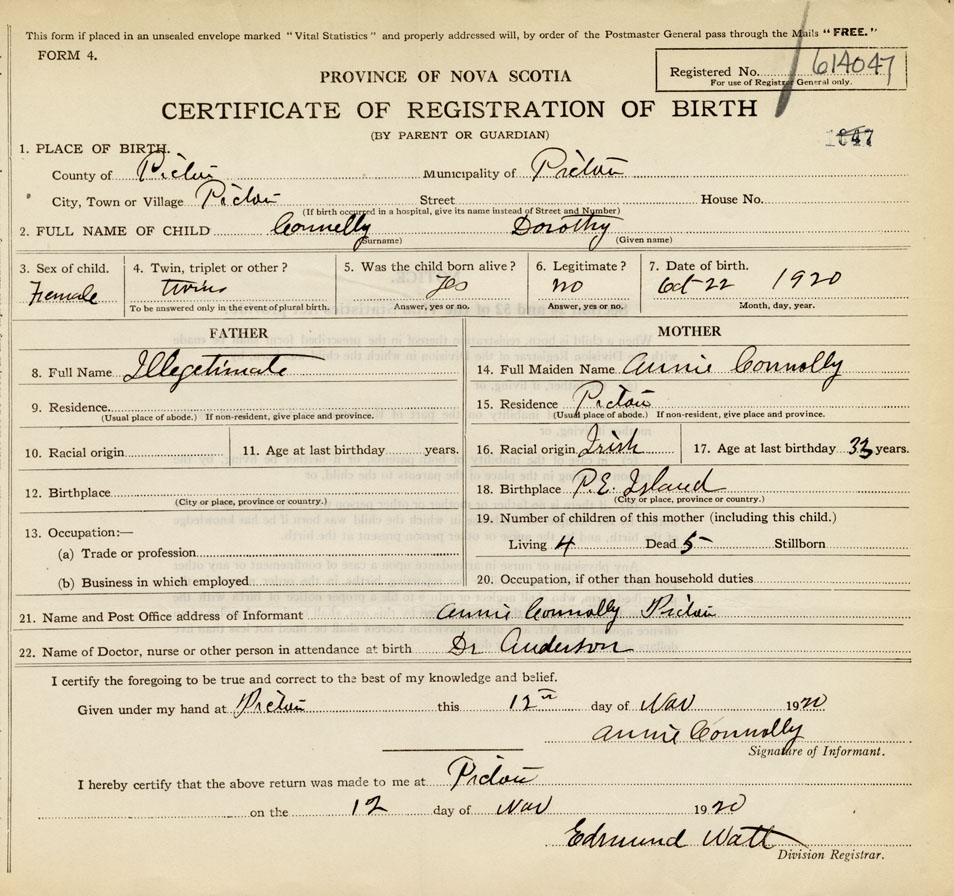 This form if placed in an unsealed envelope marked "Vital Statistics" and properly addressed will, by order of the Postmaster General pass through the Mails "FREE."
FORM 4.
Registered No. 614047
For use of Registrar General only.
PROVINCE OF NOVA SCOTIA
CERTIFICATE OF REGISTRATION OF BIRTH
(BY PARENT OR GUARDIAN)
1. PLACE OF BIRTH.
County of Pictou Municipality of Pictou
City, Town or Village Pictou Street House No.
(If birth occurred in a hospital, give its name instead of Street and Number)
2. FULL NAME OF CHILD Connolly Dorothy
(Surname) (Given name)
3. Sex of child. 4. Twin, triplet or other? 5. Was the child born alive? 6. Legitimate? 7. Date of birth.
Female twins Yes no Oct 22 1920
To be answered only in the event of plural birth. Answer, yes or no. Answer, yes or no. Month, day, year.
FATHER
8. Full Name Illegetimate
9. Residence.
(Usual place of abode.) If non-resident, give place and province.
10. Racial origin 11. Age at last birthday years.
12. Birthplace
(City or place, province or country.)
13. Occupation:—
(a) Trade or profession
(b) Business in which employed
MOTHER
14. Full Maiden Name Annie Connolly
15. Residence Pictou
(Usual place of abode.) If non-resident, give place and province.
16. Racial origin Irish 17. Age at last birthday 33 years.
18. Birthplace P.E. Island
(City or place, province or country.)
19. Number of children of this mother (including this child.)
Living 4 Dead 5 Stillborn
20. Occupation, if other than household duties
21. Name and Post Office address of Informant Annie Connolly Pictou
22. Name of Doctor, nurse or other person in attendance at birth Dr Anderson
I certify the foregoing to be true and correct to the best of my knowledge and belief.
Given under my hand at Pictou this 12th day of Nov 1920
Annie Connolly
Signature of Informant.
I hereby certify that the above return was made to me at Pictou
on the 12 day of Nov 1920
Edmund Watt
Division Registrar.